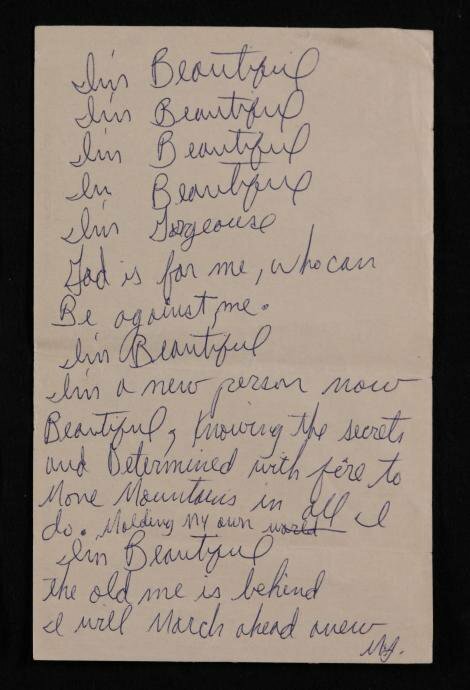 I'm Beautiful
I'm Beautiful
I'm Beautiful
Im Beautiful
I'm Gorgeouse
God is for me, who can
Be against me.
I'm Beautiful
I'm a new person now
Beautiful, Knowing the secrets
and Determined with fire to
Move Mountains in all I
do. Molding My own world
I'm Beautiful
the old me is behind
I will March ahead anew
MJ.